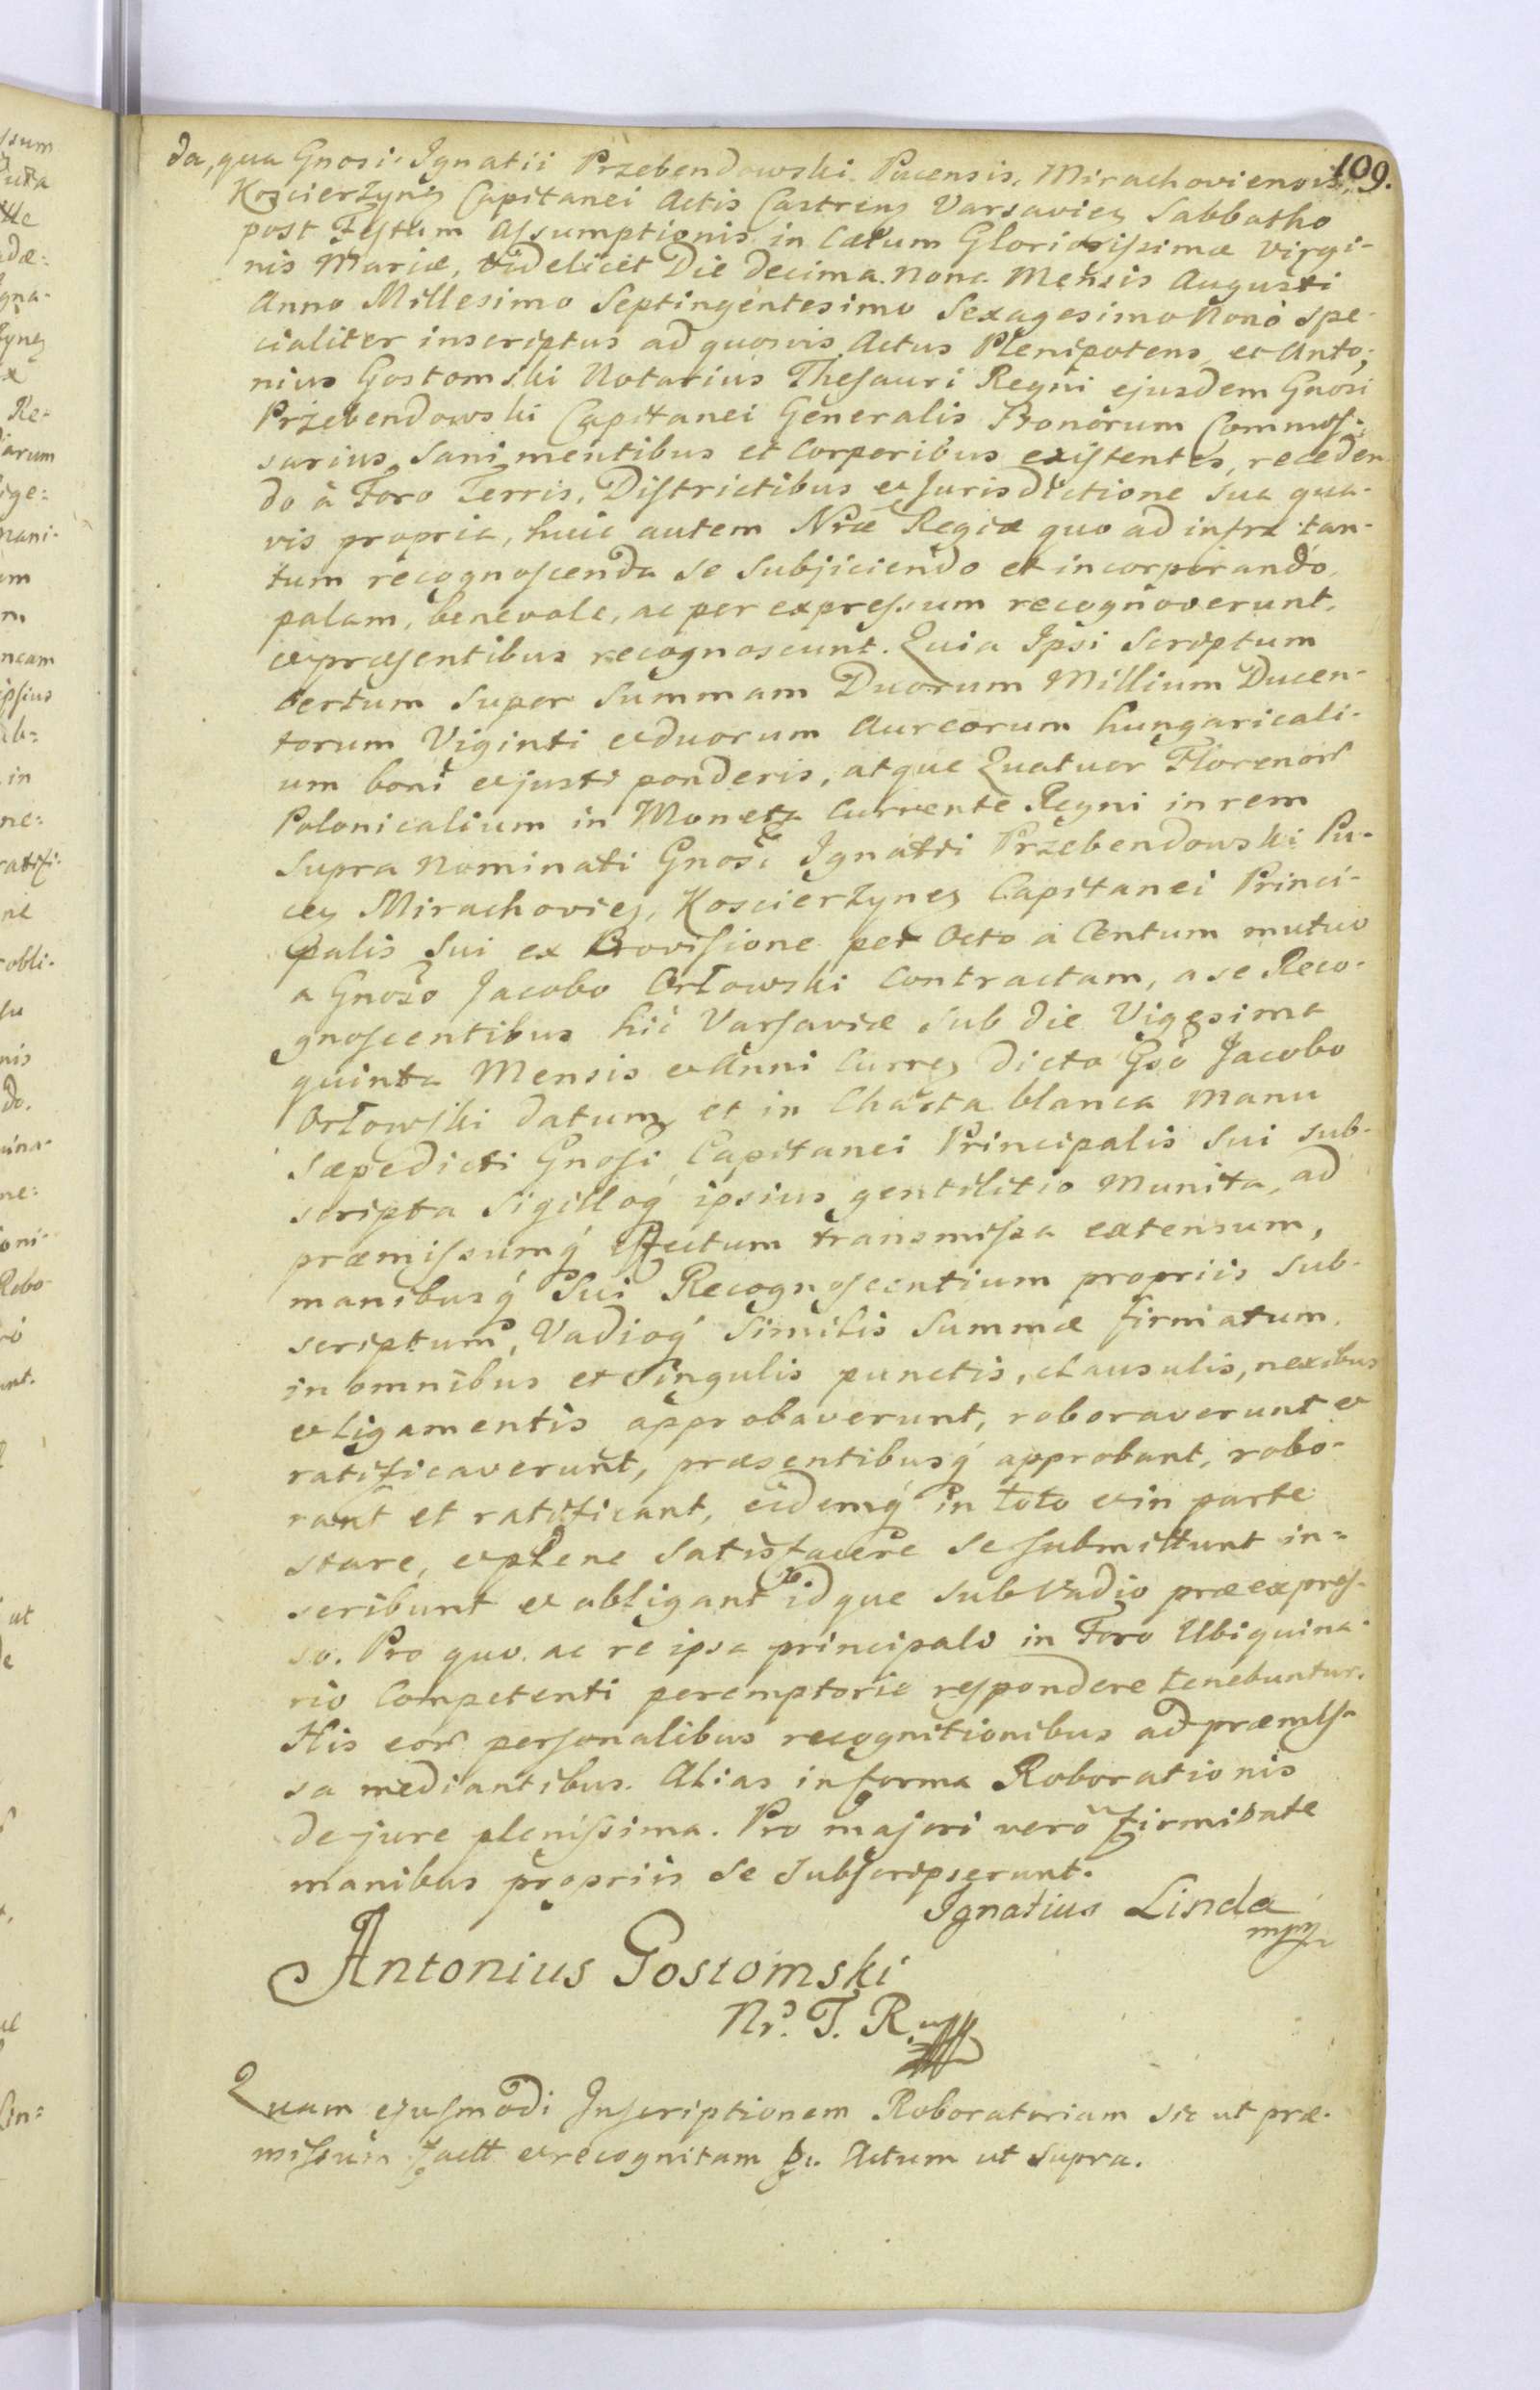 109.
da, qua Gnosi Ignatii Przebendowski Pucensis, Mirachoviensis,
Koscierzynẽ Capitanei Actis Castren̄ Varsavien̄ Sabbatho
post Festum Assumptionis in Cælum Gloriosissimæ Virgi-
nis Mariæ, videlicet Die decima nona Mensis Augusti
Anno Millesimo Septingentesimo Sexagesimo Nono spe-
cialiter inscriptus ad quosvis Actus Plenipotens, et Anto-
nius Gostomski Notarius Thesauri Regni ejusdem Gnosi
Przebendowski Capitanei Generalis Bonorum Commis-
sarius, sani mentibus et Corporibus existentes, receden-
do à Foro Terris, Districtibus et Jurisdictione sua qua-
vis propria, huic autem Nræ Regiæ quo ad infra tan-
tum recognoscenda se subjiciendo et incorporando,
palam, benevole, ac per expressum recognoverunt,
et præsentibus recognoscunt. Quia Ipsi Scriptum
certum super Summam Duorum Millium Ducen-
torum Viginti et duorum Aureorum hungaricali-
um boni et justi ponderis, atque Quatuor Florenor̄
Polonicalium in Moneta Currente Regni in rem
supra Nominati Gnosi Ignatii Przebendowski Pu-
cen̄ Mirachovien̄, Koscierzynen̄ Capitanei Princi-
palis Sui ex Provisione per Octo a Centum mutuo
a Gnoso Jacobo Orłowski Contractam, a se Reco-
gnoscentibus hic Varsaviæ sub die Vigesima
quinta Mensis et Anni Curren̄ dicto Gso Jacobo
Orłowski datum, et in Charta blanca Manu
sæpedicti Gnosi Capitanei Principalis Sui sub-
scripta Sigilloq́ ipsius gentilitio Munita, ad
præmissumq́ effectum transmissa extensum,
manibusq́ Sui Recognoscentium propriis sub-
scriptum, Vadioq́ Similis Summæ firmatum,
in omnibus et Singulis punctis, clausulis, nexibus
et ligamentis approbaverunt, roboraverunt et
ratificaverunt, præsentibusq́ approbant, robo-
rant et ratificant, eidemq́ in toto et in parte
stare, et plene Satisfacere se submittunt in=
scribunt et obligant idque sub Vadio præexpres-
so. Pro quo, ac re ipsa principali in Foro Ubiquina-
rio Competenti peremptorie respondere tenebuntur.
His eor̄ personalibus recognitionibus ad præmis-
sa mediantibus. Alias in forma Roborationis
de jure plenissima. Pro majori verò firmitate
manibus propriis se subscripserunt.
Ignatius Linda
mpp
Antonius Gostomski
Nr. T. R. mpp
Quam ejusmodi Inscriptionem Roboratoriam sic ut præ-
missum factt et recognitam Actum ut supra.